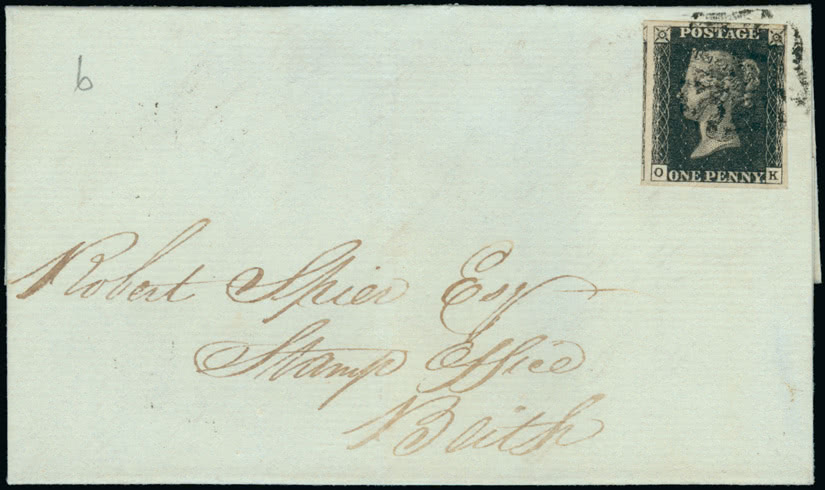 b
POSTAGE
O ONE PENNY K
Robert Spier Esq
Stamp Office
Beith